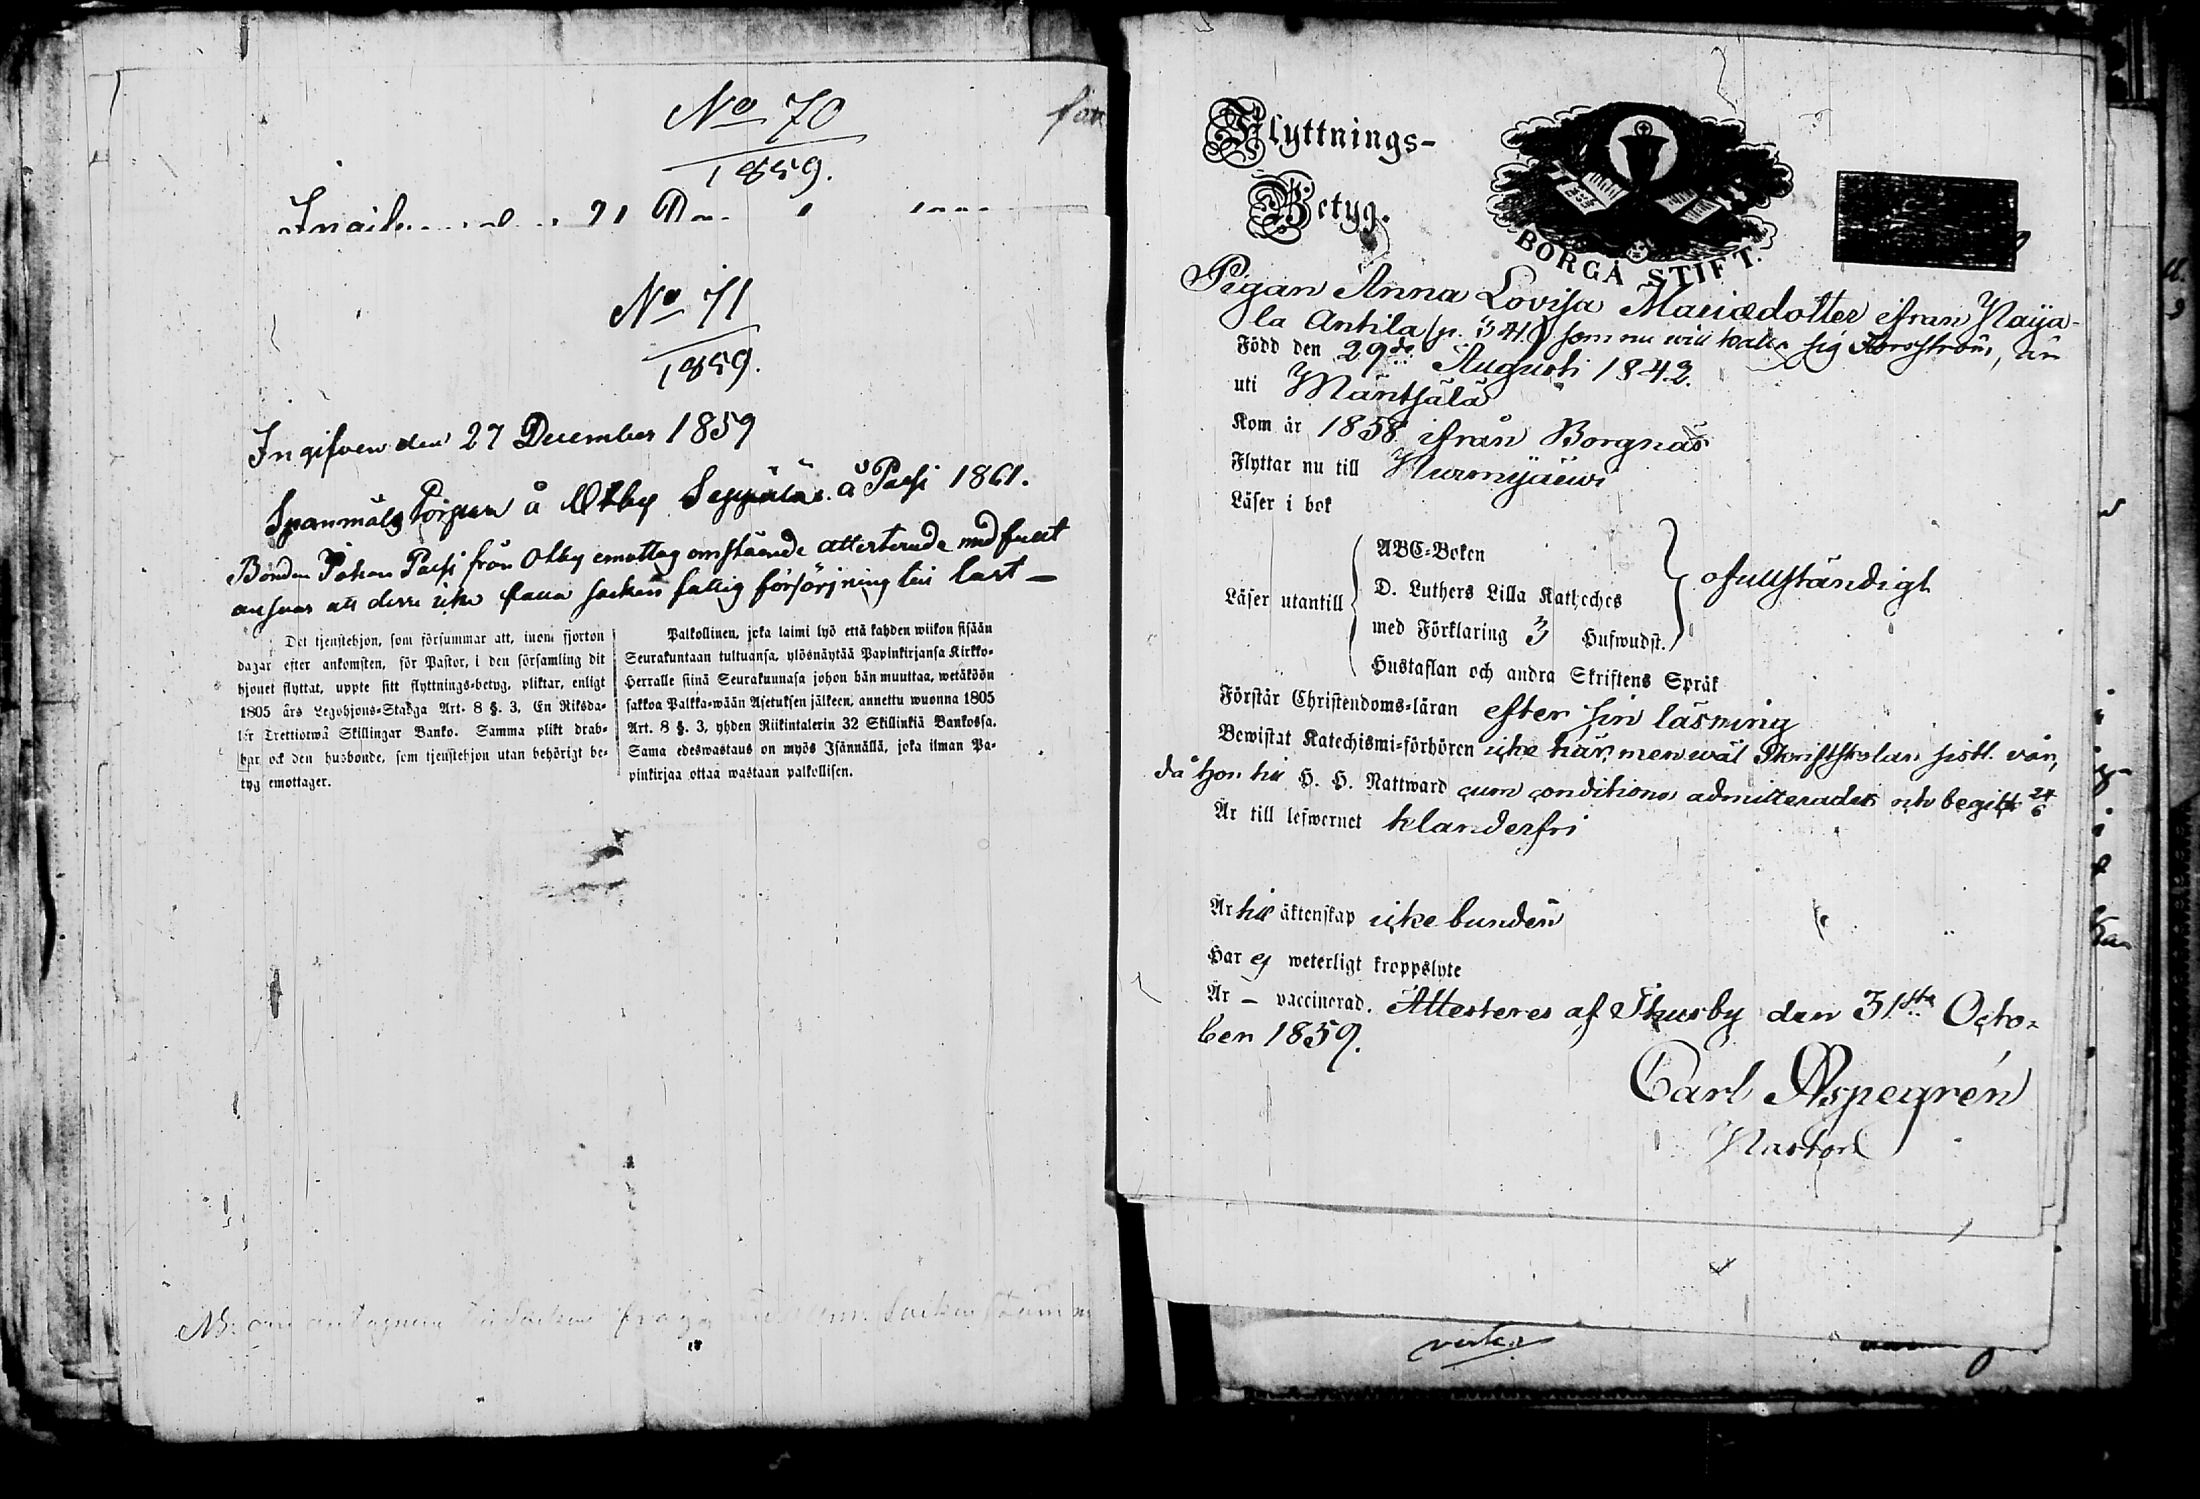 No 70
1859.
No 71
1859.
Ingifven den 27 December 1859
Spanmåls å Otby Seppälä å Pasi 1861.
Bonden Johan Pasi från Otby emottag omstående attesterade med fullt
ansvar att derre icke falla socken fattig försörjning till last –
Det tjenstehjon, som försummar att, inom fjorton
dagar efter ankomsten, för Pastor, i den församling dit
hjonet flyttat, uppte sitt flyttnings-betyg, pliktar, enligt
1805 års Legohjons-Stadga Art. 8 §. 3, En Riksda-
ler Trettiotwå Skillingar Banko. Samma plikt drab-
bar ock den husbonde, som tjenstehjon utan behörigt be-
tyg emottager.
Palkollinen, joka laimi lyö että kahden wiikon sisään
Seurakuntaan tultuansa, ylösnäytää Papinkirjansa Kirkko-
Herralle siinä Seurakunnasa johon hän muuttaa, wetäköön
sakkoa Palkka-wään Asetuksen jälkeen, annettu wuonna 1805
Art. 8 §. 3, yhden Riikintalerin 32 Skillinkiä Bankossa.
Sama edeswastaus on myös Isännällä, joka ilman Pa-
pinkirjaa ottaa wastaan palkollisen.
Flyttnings-
Betyg.
BORGÅ STIFT.
Pigan Anna Lovisa Mariædotter ifran Naija-
la Antila (p. 341) som nu will kalla sig Forsström, är
Född den 29de Augusti 1842.
uti Mäntsälä
Kom år 1858 ifrån Borgnäs
Flyttar nu till Nurmijärwi
Läser i bok
Läser utantill
ABC-Boken
D. Luthers Lilla Katheches
med Förklaring 3 Hufwudst.
Hustaflan och andra Skriftens Språk
ofullständigt
Förstår Christendoms-läran efter sin läsning
Bewistat Katechismi-förhören icke här, men wäl Skriftskolan sistl. vår,
då hon till H. H. Nattward cum conditione admitterades och begick 24/6
Är till lefwernet klanderfri
Är till äktenskap icke bunden
Har ej weterligt kroppslyte
Är – vaccinerad. Attesteres af Thusby den 31sta Octo-
ber 1859.
Carl Aspegrén
Pastor